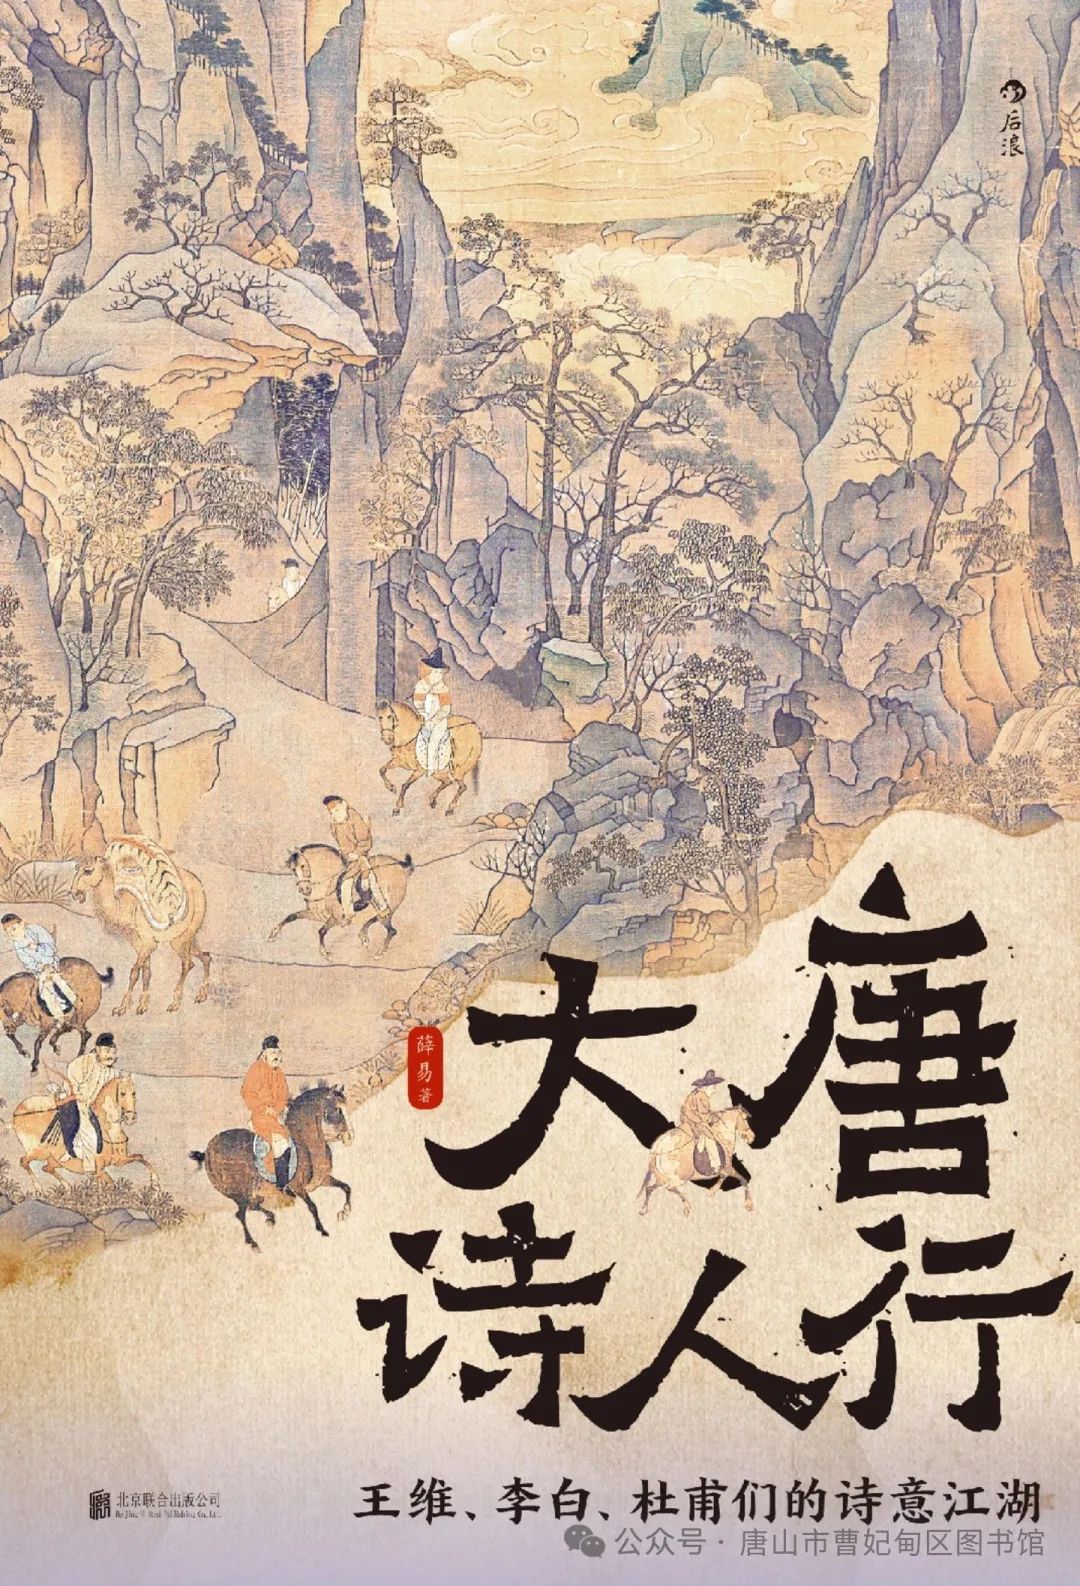 后浪
大唐
诗人行
薛易 著
王维、李白、杜甫们的诗意江湖
北京联合出版公司
Beijing United Publishing Co., Ltd.
公众号·唐山市曹妃甸区图书馆